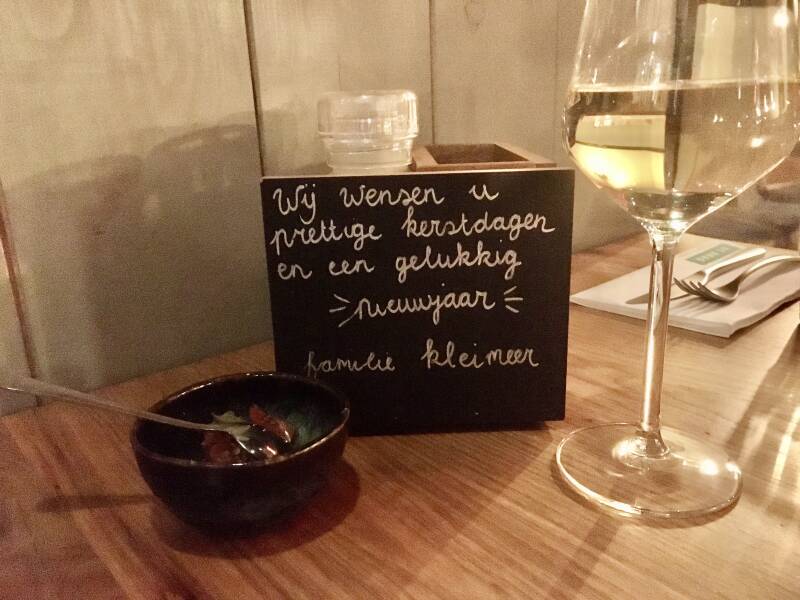 Wij wensen u
prettige kerstdagen
en een gelukkig
nieuwjaar
familie kleimeer